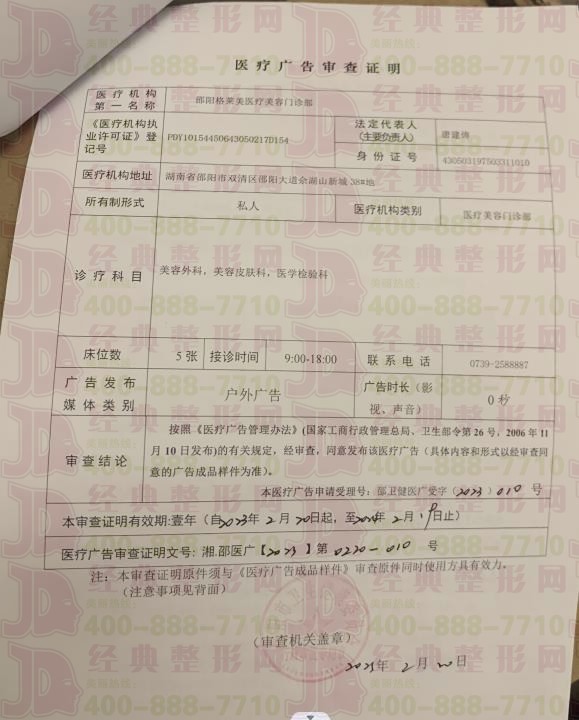 医疗广告审查证明
医疗机构
第一名称
邵阳格莱美医疗美容门诊部
《医疗机构执
业许可证》登
记号
PDY10154450643050217D154
法定代表人
(主要负责人)
唐建伟
身份证号
430503197503311010
医疗机构地址
湖南省邵阳市双清区邵阳大道佘湖山新城38#地
所有制形式
私人
医疗机构类别
医疗美容门诊部
诊疗科目
美容外科，美容皮肤科，医学检验科
床位数
5 张
接诊时间
9:00-18:00
联系电话
0739-2588887
广告发布
媒体类别
户外广告
广告时长（影
视、声音）
0 秒
审查结论
按照《医疗广告管理办法》(国家工商行政管理总局、卫生部令第 26 号，2006 年 11
月 10 日发布)的有关规定，经审查，同意发布该医疗广告（具体内容和形式以经审查同
意的广告成品样件为准）。
本医疗广告申请受理号：邵卫健医广受字（2023）010 号
本审查证明有效期:壹年（自2023年 2 月 20日起，至2024年 2 月 19日止）
医疗广告审查证明文号: 湘.邵医广【2023】第 0220-010 号
注：本审查证明原件须与《医疗广告成品样件》审查原件同时使用方具有效力。
（注意事项见背面）
（审查机关盖章）
2023年 2 月 20日
经典整形网
400-888-7710